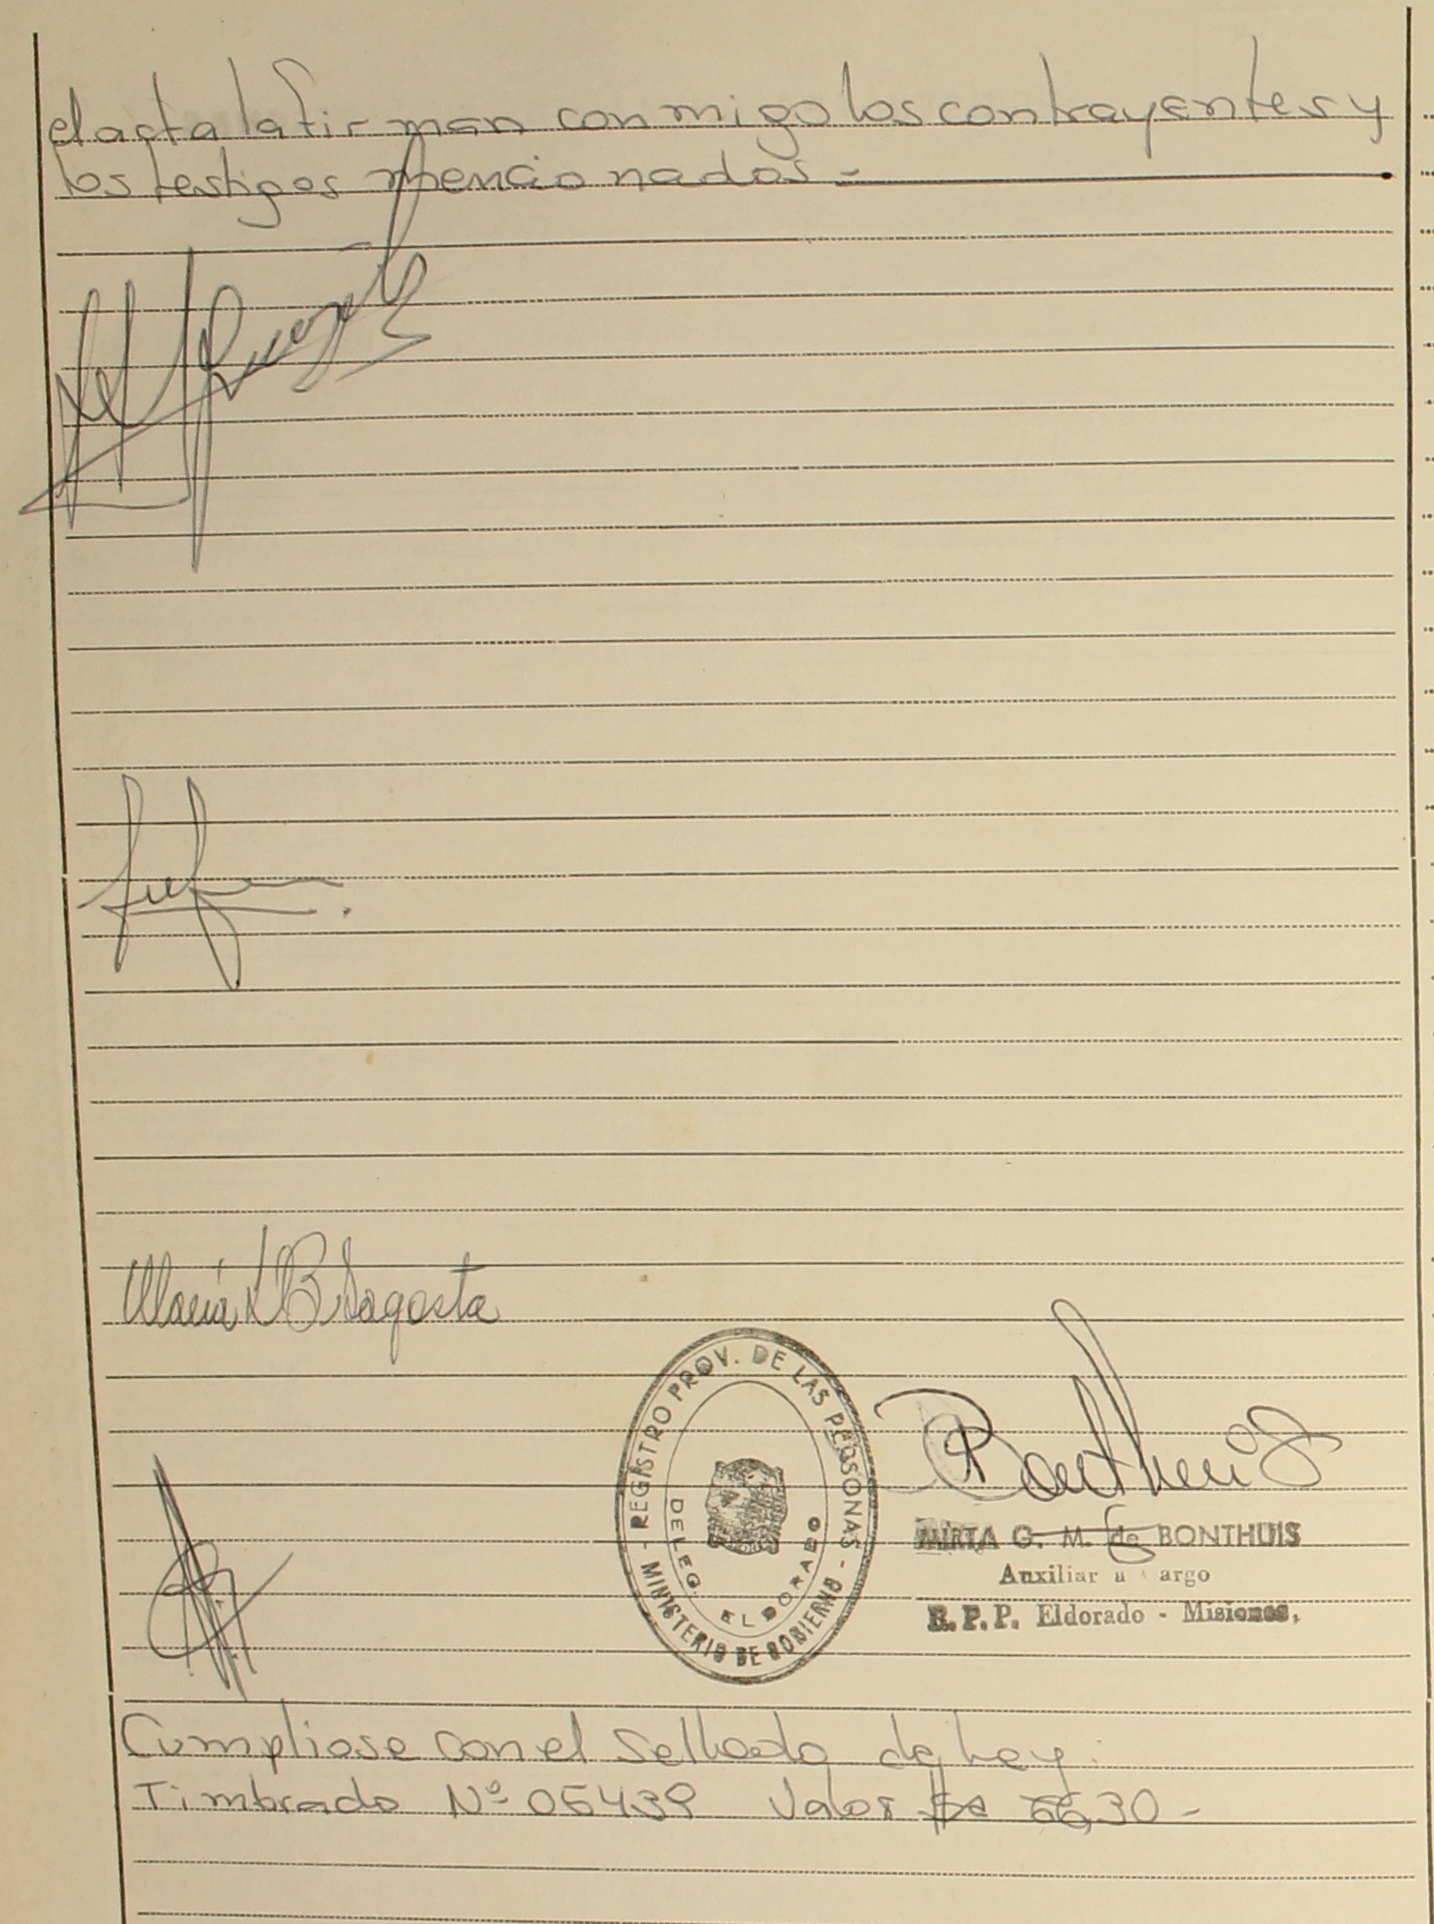 el acta la firman conmigo los contrayentes y
los testigos mencionados -
María L B Sagosta
REGISTRO PROV. DE LAS PERSONAS
DELEG. ELDORADO
- MINISTERIO DE GOBIERNO -
Bonthuis
MIRTA G. M. de BONTHUIS
Auxiliar a argo
R. P. P. Eldorado - Misiones.
Cumpliose con el Sellado de Ley.
Timbrado Nº 05439 Valor 30 -